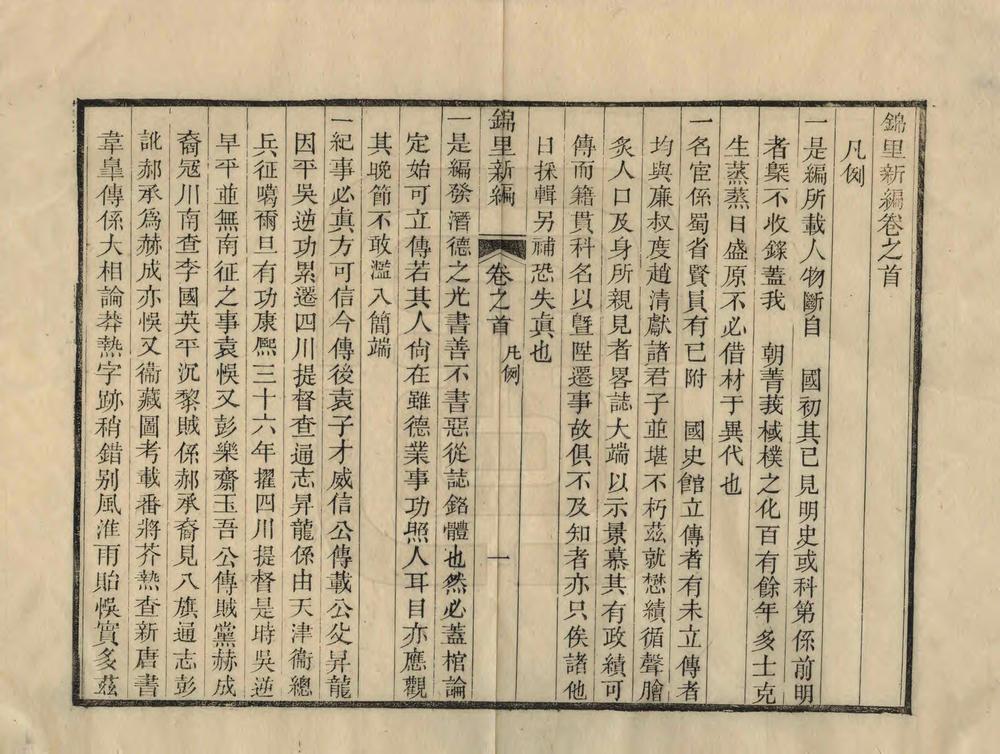 錦里新編卷之首
凡例
一是編所載人物斷自　國初其已見明史或科第係前明
者槩不收錄蓋我　朝菁莪棫樸之化百有餘年多士克
生蒸蒸日盛原不必借材于異代也
一名宦係蜀省賢員有已附　國史館立傳者有未立傳者
均與廉叔度趙清獻諸君子並堪不朽茲就懋績循聲膾
炙人口及身所親見者畧誌大端以示景慕其有政績可
傳而籍貫科名以曁陞遷事故俱不及知者亦只俟諸他
日採輯另補恐失眞也
錦里新編
卷之首
凡例
一
一是編發潛德之光書善不書惡從誌銘體也然必蓋棺論
定始可立傳若其人尙在雖德業事功照人耳目亦應觀
其晚節不敢濫入簡端
一紀事必眞方可信今傳後袁子才威信公傳載公父昇龍
因平吳逆功累遷四川提督查通志昇龍係由天津衞總
兵征噶爾旦有功康熈三十六年擢四川提督是時吳逆
早平並無南征之事袁悞又彭樂齋玉吾公傳賊黨赫成
裔冦川南查李國英平沉黎賊係郝承裔見八旗通志彭
訛郝承爲赫成亦悞又衞藏圖考載番將芥熱查新唐書
韋臯傳係大相論莽熱字跡稍錯别風淮雨貽悞實多茲